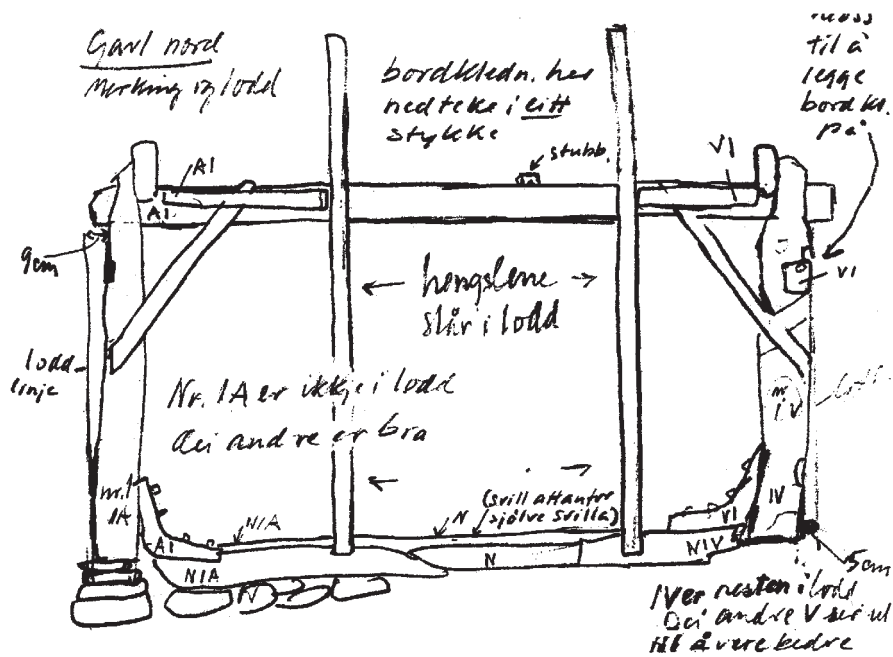 Gavl nord
Merking og lodd
bordkledn. her
nedteke i eitt
stykke
til å
legge
bordkl.
på
stubb.
A1
A1
VI
9cm
VI
← hengslene →
slår i lodd
lodd
linje
Nr. 1A er ikkje i lodd
dei andre er bra
nr.
IV
nr. 1
1A
IV
(svill attanfor
sjølve svilla)
N1A
N
A1
VI
N1A
N
NIV
N
5cm
IV er nesten i lodd
Dei andre V ser ut
til å vere bedre